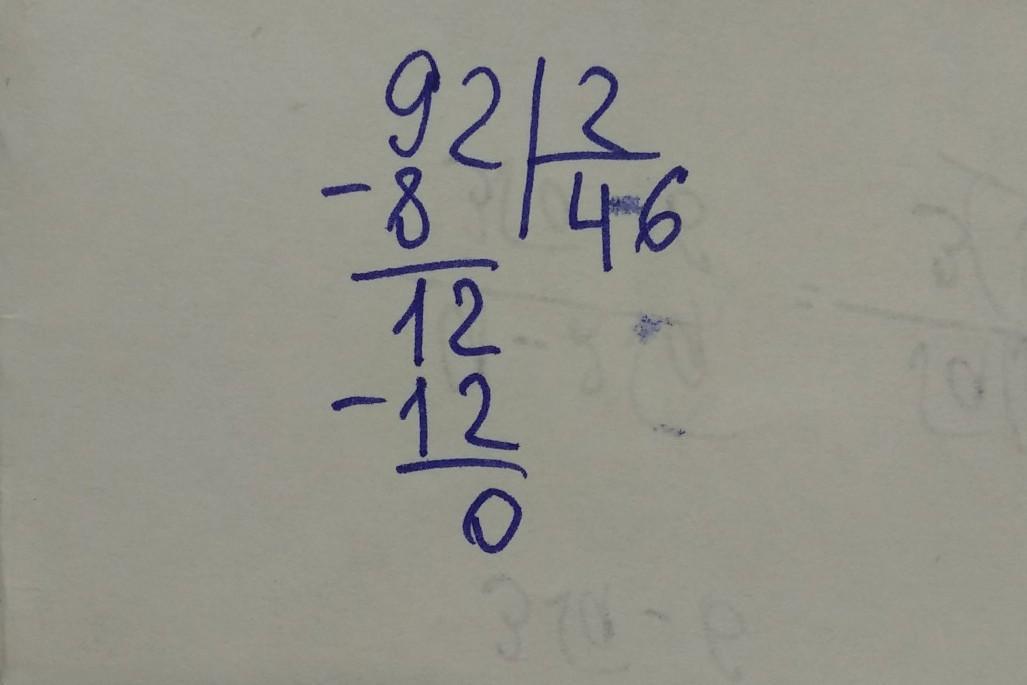 92 | 2
-8 | 46
12
-12
0